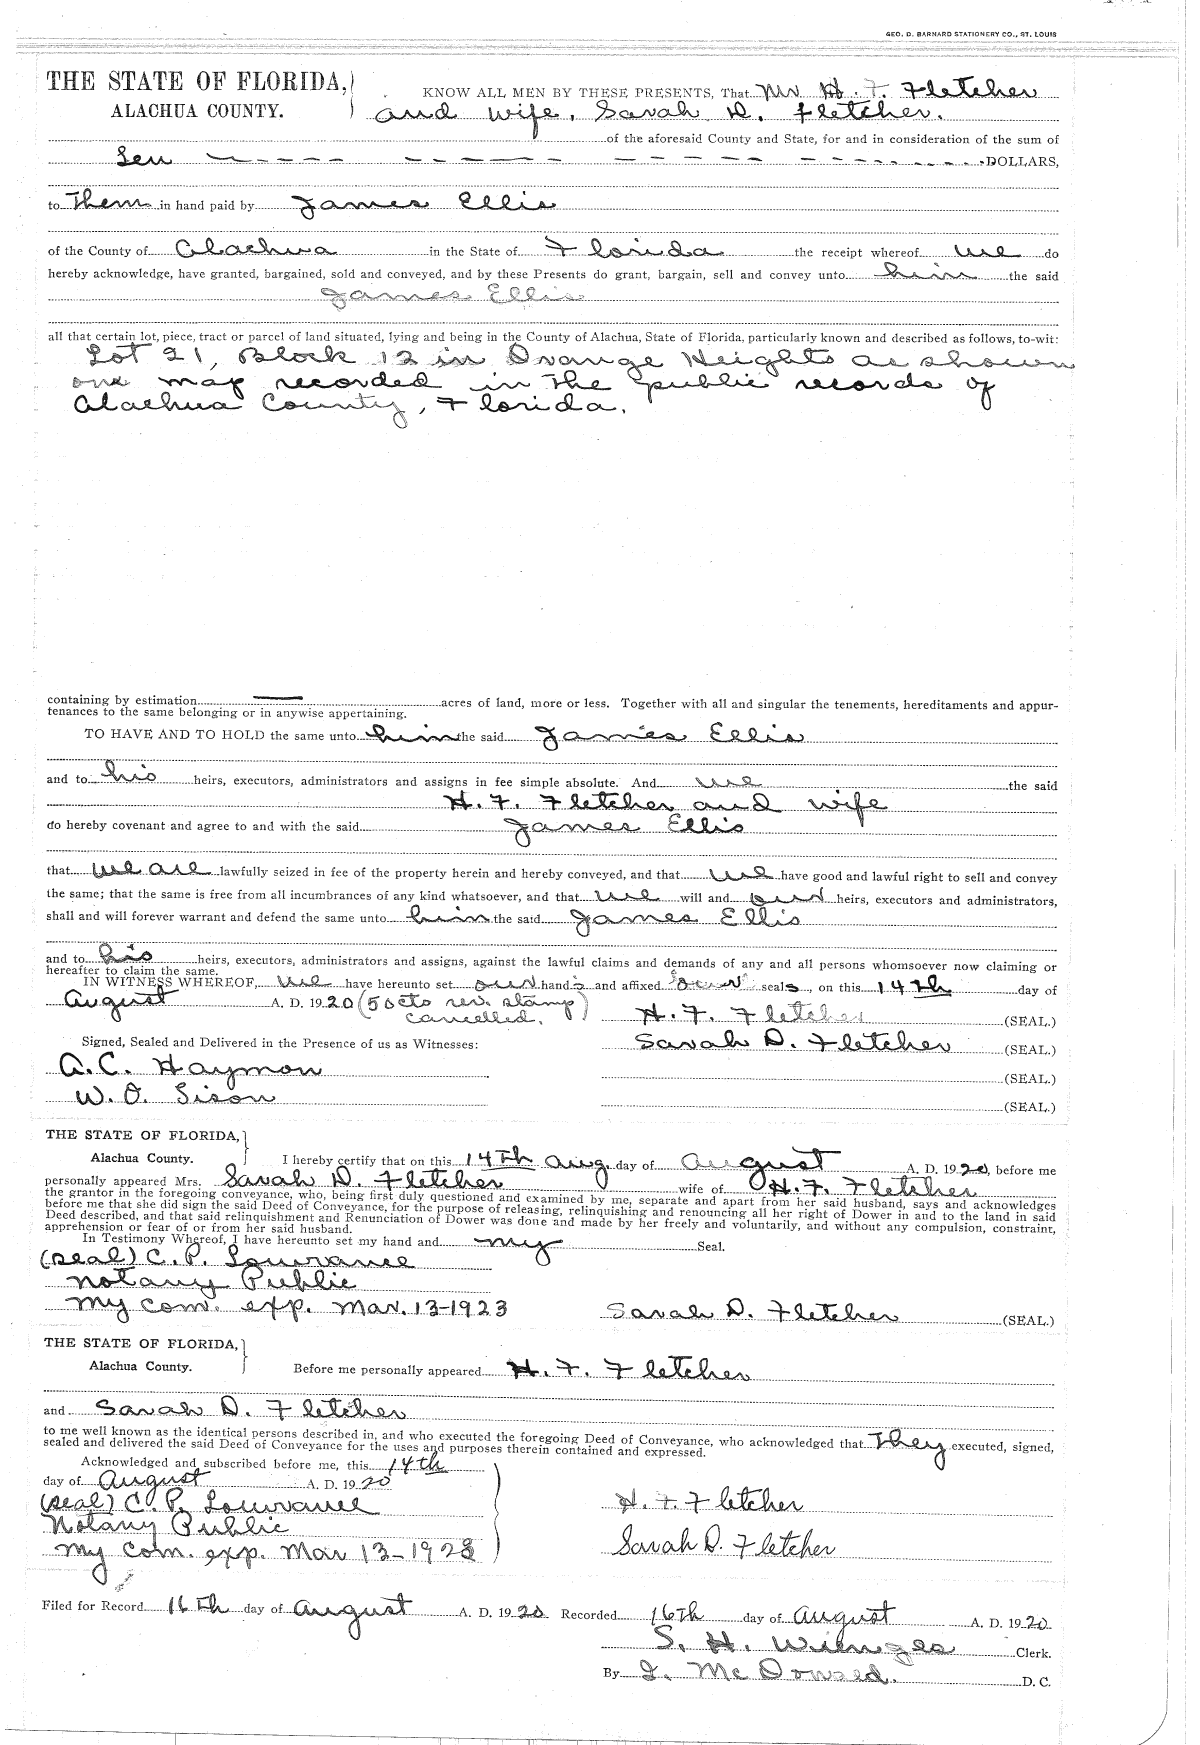 GEO. D. BARNARD STATIONERY CO., ST. LOUIS
THE STATE OF FLORIDA,
ALACHUA COUNTY.
KNOW ALL MEN BY THESE PRESENTS, That Mr H. F. Fletcher
and wife, Sarah D. Fletcher.
of the aforesaid County and State, for and in consideration of the sum of
Ten DOLLARS,
to them in hand paid by James Ellis
of the County of Alachua in the State of Florida the receipt whereof we do
hereby acknowledge, have granted, bargained, sold and conveyed, and by these Presents do grant, bargain, sell and convey unto him the said
James Ellis
all that certain lot, piece, tract or parcel of land situated, lying and being in the County of Alachua, State of Florida, particularly known and described as follows, to-wit:
Lot 21, Block 12 in Orange Heights as shown
one map recorded in the public records of
Alachua County, Florida.
containing by estimation acres of land, more or less. Together with all and singular the tenements, hereditaments and appur-
tenances to the same belonging or in anywise appertaining.
TO HAVE AND TO HOLD the same unto him the said James Ellis
and to his heirs, executors, administrators and assigns in fee simple absolute. And we the said
H. F. Fletcher and wife
do hereby covenant and agree to and with the said James Ellis
that we are lawfully seized in fee of the property herein and hereby conveyed, and that we have good and lawful right to sell and convey
the same; that the same is free from all incumbrances of any kind whatsoever, and that we will and our heirs, executors and administrators,
shall and will forever warrant and defend the same unto him the said James Ellis
and to his heirs, executors, administrators and assigns, against the lawful claims and demands of any and all persons whomsoever now claiming or
hereafter to claim the same.
IN WITNESS WHEREOF, we have hereunto set our hands and affixed our seals, on this 14th day of
August A. D. 1920 (50cts rev. stamp
cancelled.) H. F. Fletcher (SEAL.)
Signed, Sealed and Delivered in the Presence of us as Witnesses: Sarah D. Fletcher (SEAL.)
A. C. Haymon (SEAL.)
W. O. Sison (SEAL.)
THE STATE OF FLORIDA,
Alachua County. I hereby certify that on this 14th Aug. day of August A. D. 1920, before me
personally appeared Mrs. Sarah D. Fletcher wife of H. F. Fletcher
the grantor in the foregoing conveyance, who, being first duly questioned and examined by me, separate and apart from her said husband, says and acknowledges
before me that she did sign the said Deed of Conveyance, for the purpose of releasing, relinquishing and renouncing all her right of Dower in and to the land in said
Deed described, and that said relinquishment and Renunciation of Dower was done and made by her freely and voluntarily, and without any compulsion, constraint,
apprehension or fear of or from her said husband.
In Testimony Whereof, I have hereunto set my hand and my Seal.
(seal) C. P. Lowrance
Notary Public
my com. exp. Mar. 13-1923 Sarah D. Fletcher (SEAL.)
THE STATE OF FLORIDA,
Alachua County. Before me personally appeared H. F. Fletcher
and Sarah D. Fletcher
to me well known as the identical persons described in, and who executed the foregoing Deed of Conveyance, who acknowledged that they executed, signed,
sealed and delivered the said Deed of Conveyance for the uses and purposes therein contained and expressed.
Acknowledged and subscribed before me, this 14th
day of August A. D. 1920
(seal) C. P. Lowrance H. F. Fletcher
Notary Public
my com. exp. Mar 13-1923 Sarah D. Fletcher
Filed for Record 16th day of August A. D. 1920 Recorded 16th day of August A. D. 1920
S. H. Wienges Clerk.
By McDowell. D. C.